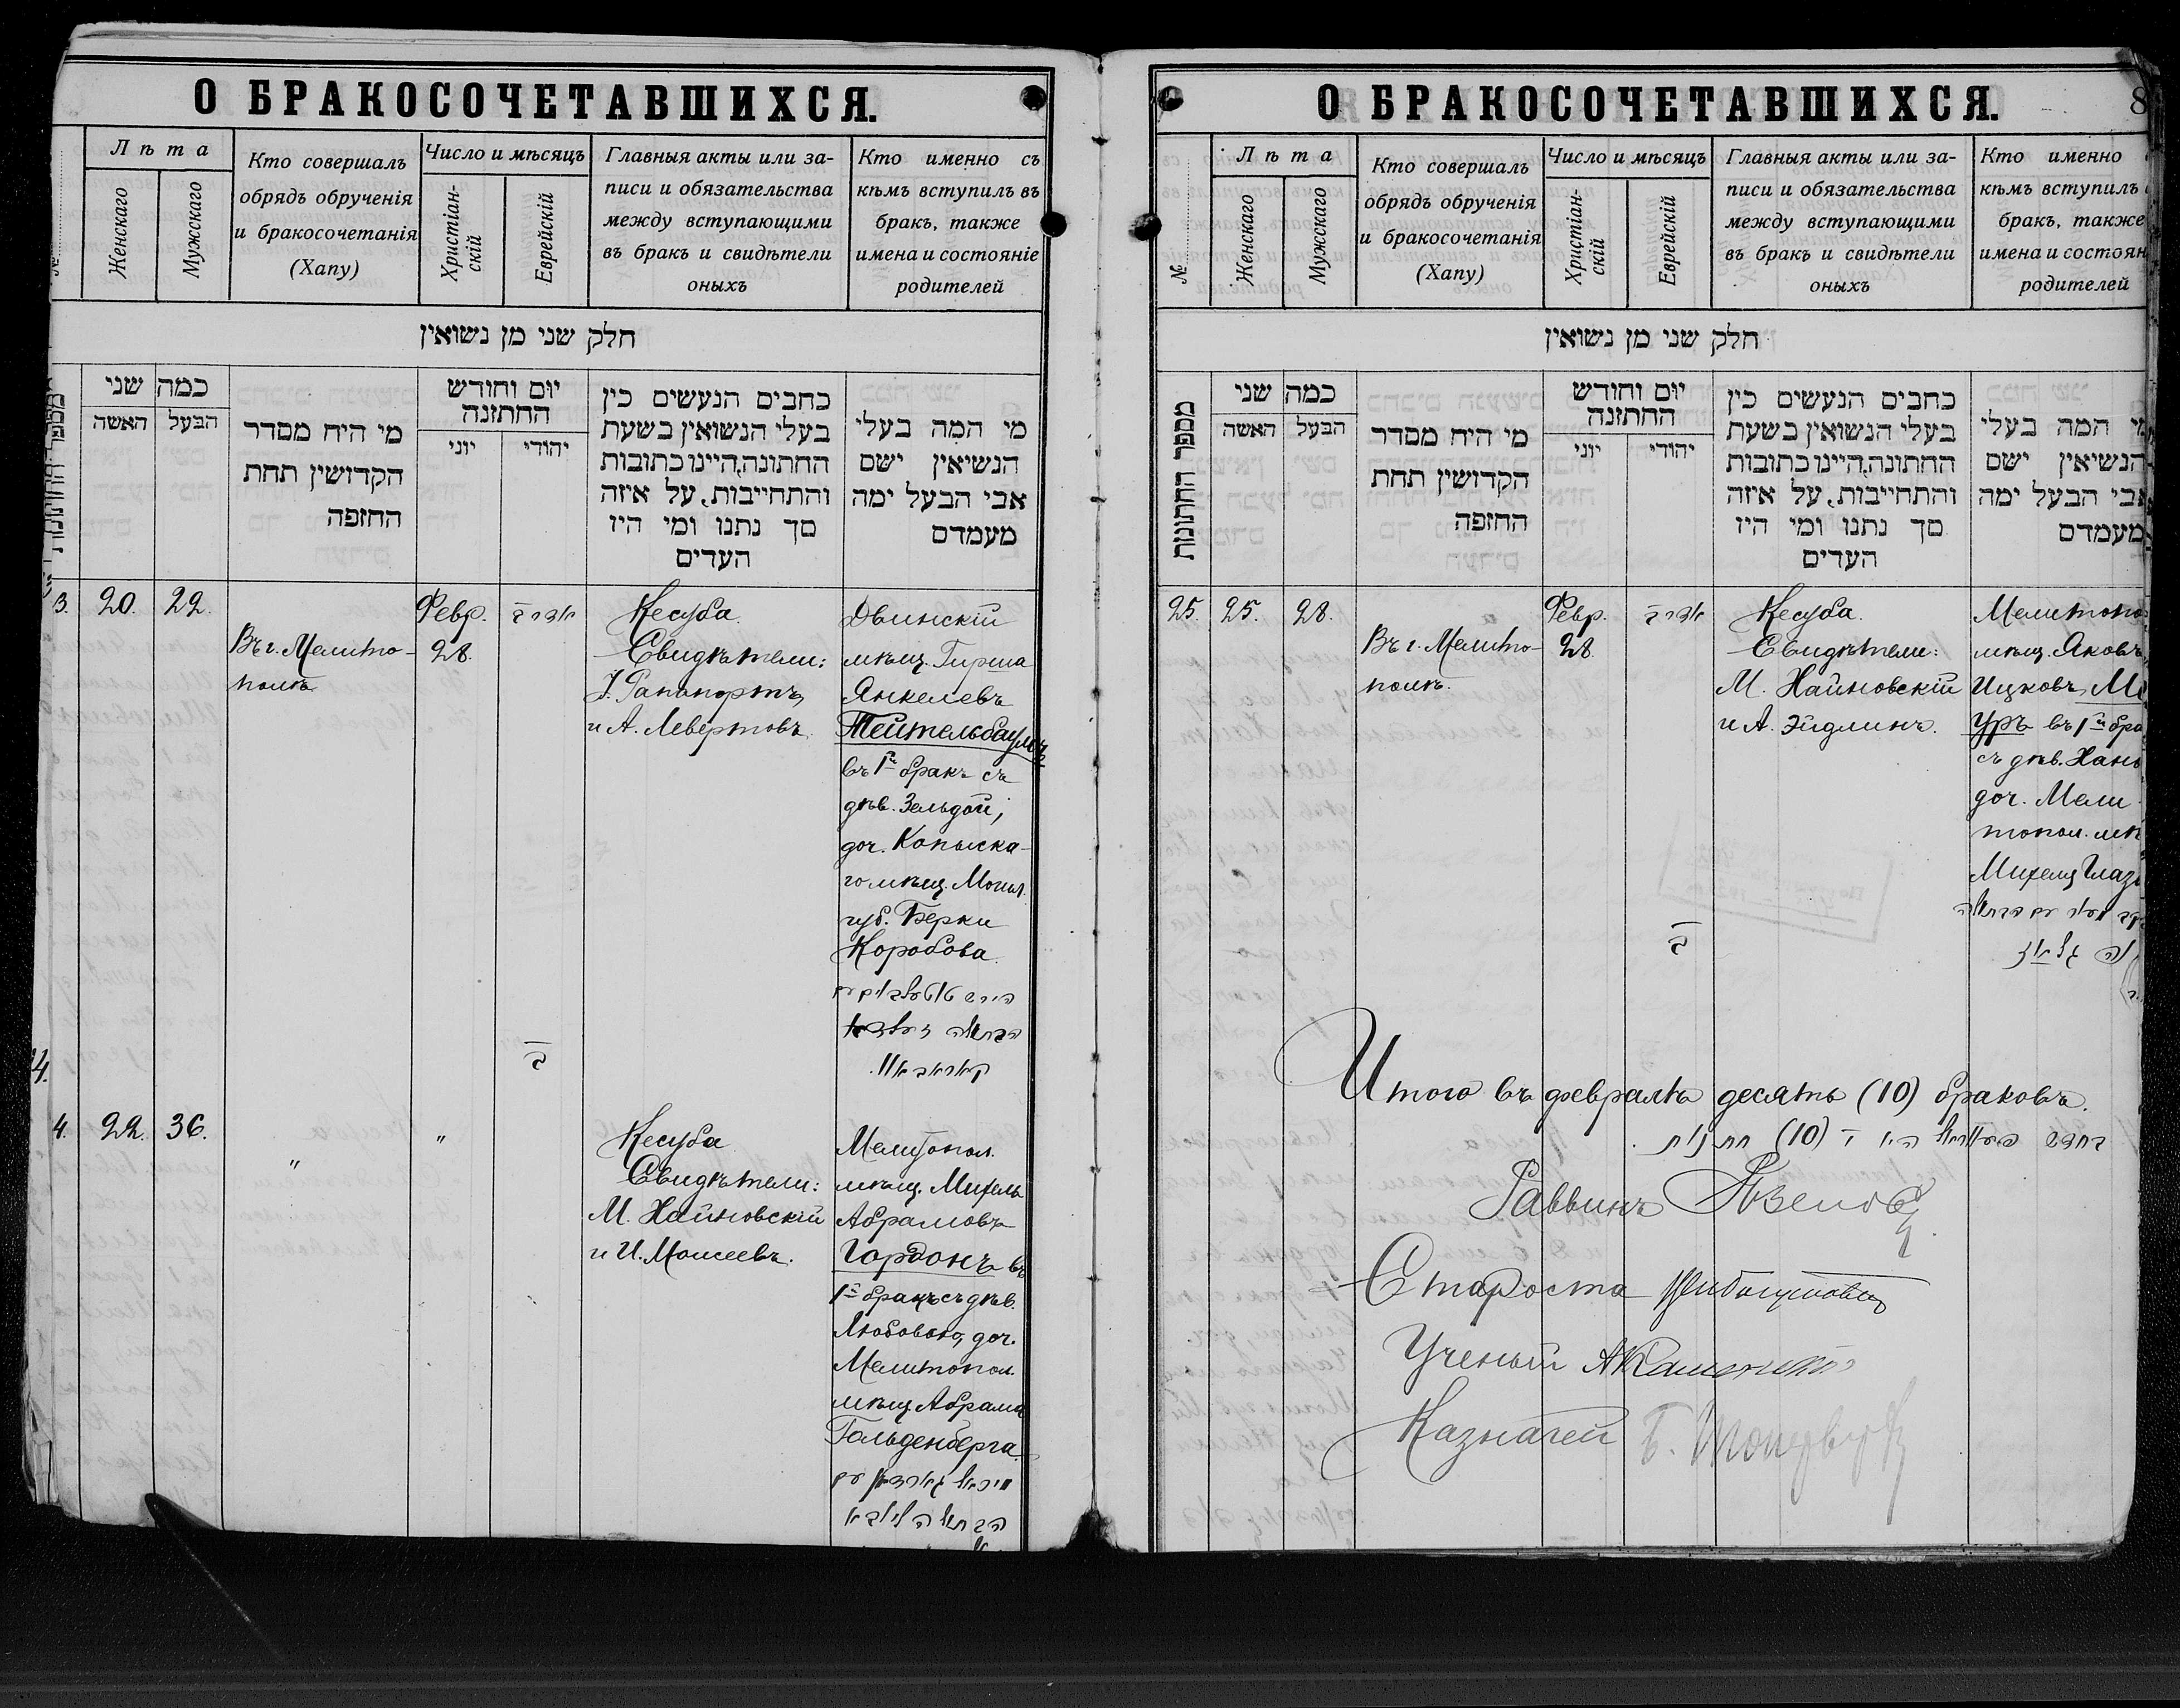 О БРАКОСОЧЕТАВШИХСЯ.
Лѣта
Женскаго
Мужскаго
Кто совершалъ
обрядъ обрученія
и бракосочетанія
(Хапу)
Число и мѣсяцъ
Христіан-
скій
Еврейскій
Главныя акты или за-
писи и обязательства
между вступающими
въ бракъ и свидѣтели
оныхъ
Кто именно съ
кѣмъ вступилъ въ
бракъ, также
имена и состояніе
родителей
חלק שני מן נשואין
כמה שני
האשה
הבעל
מי היח מסדר
הקדושין תחת
החזפה
יום וחודש
החתזנה
יוני
יהודי
כחבים הנעשים כין
בעלי הנשואין בשעת
החתונה, היינו כתובות
והתחייבות, על איזה
סך נתנו ומי היו
העדים
מי המה בעלי
הנשיאין ישם
אבי הבעל ימה
מעמדם
3.
20.
22.
Въ г. Мелито-
полѣ.
Февр.
28.
Кесуба.
Свидѣтели:
І. Рапопортъ
и А. Левертовъ.
Двинскій
мѣщ. Гирша
Янкелевъ
Тейтельбаумъ
въ 1й бракъ съ
дѣв. Зельдой,
доч. Копыска-
го мѣщ. Могил.
губ. Берки
Коробова.
4.
22.
36.
"
"
Кесуба
Свидѣтели:
М. Найновскій
и И. Моисеевъ.
Мелитопол.
мѣщ. Михель
Абрамовъ
Гордонъ въ
1й бракъ съ дѣв.
Любовью, доч.
Мелитопол.
мѣщ. Абрама
Гольденберга.
О БРАКОСОЧЕТАВШИХСЯ.
8
№
Лѣта
Женскаго
Мужскаго
Кто совершалъ
обрядъ обрученія
и бракосочетанія
(Хапу)
Число и мѣсяцъ
Христіан-
скій
Еврейскій
Главныя акты или за-
писи и обязательства
между вступающими
въ бракъ и свидѣтели
оныхъ
Кто именно
кѣмъ вступилъ
бракъ, также
имена и состоян
родителей
חלק שני מן נשואין
מספר החתונות
כמה שני
האשה
הבעל
מי היח מסדר
הקדושין תחת
החזפה
יום וחודש
החתזנה
יוני
יהודי
כחבים הנעשים כין
בעלי הנשואין בשעת
החתונה, היינו כתובות
והתחייבות, על איזה
סך נתנו ומי היו
העדים
מי המה בעלי
הנשיאין ישם
אבי הבעל ימה
מעמדם
25.
25.
28.
Въ г. Мелито-
полѣ.
Февр.
28.
Кесуба.
Свидѣтели:
М. Найновскій
и А. Эйдлинъ.
Мелитопо
мѣщ. Яковъ
Ицковъ М
уръ въ 1й бра
съ дѣв. Хань
доч. Мели-
топол. мѣ
Итого въ февралѣ десять (10) браковъ.
Раввинъ
Староста
Ученый
Казначей